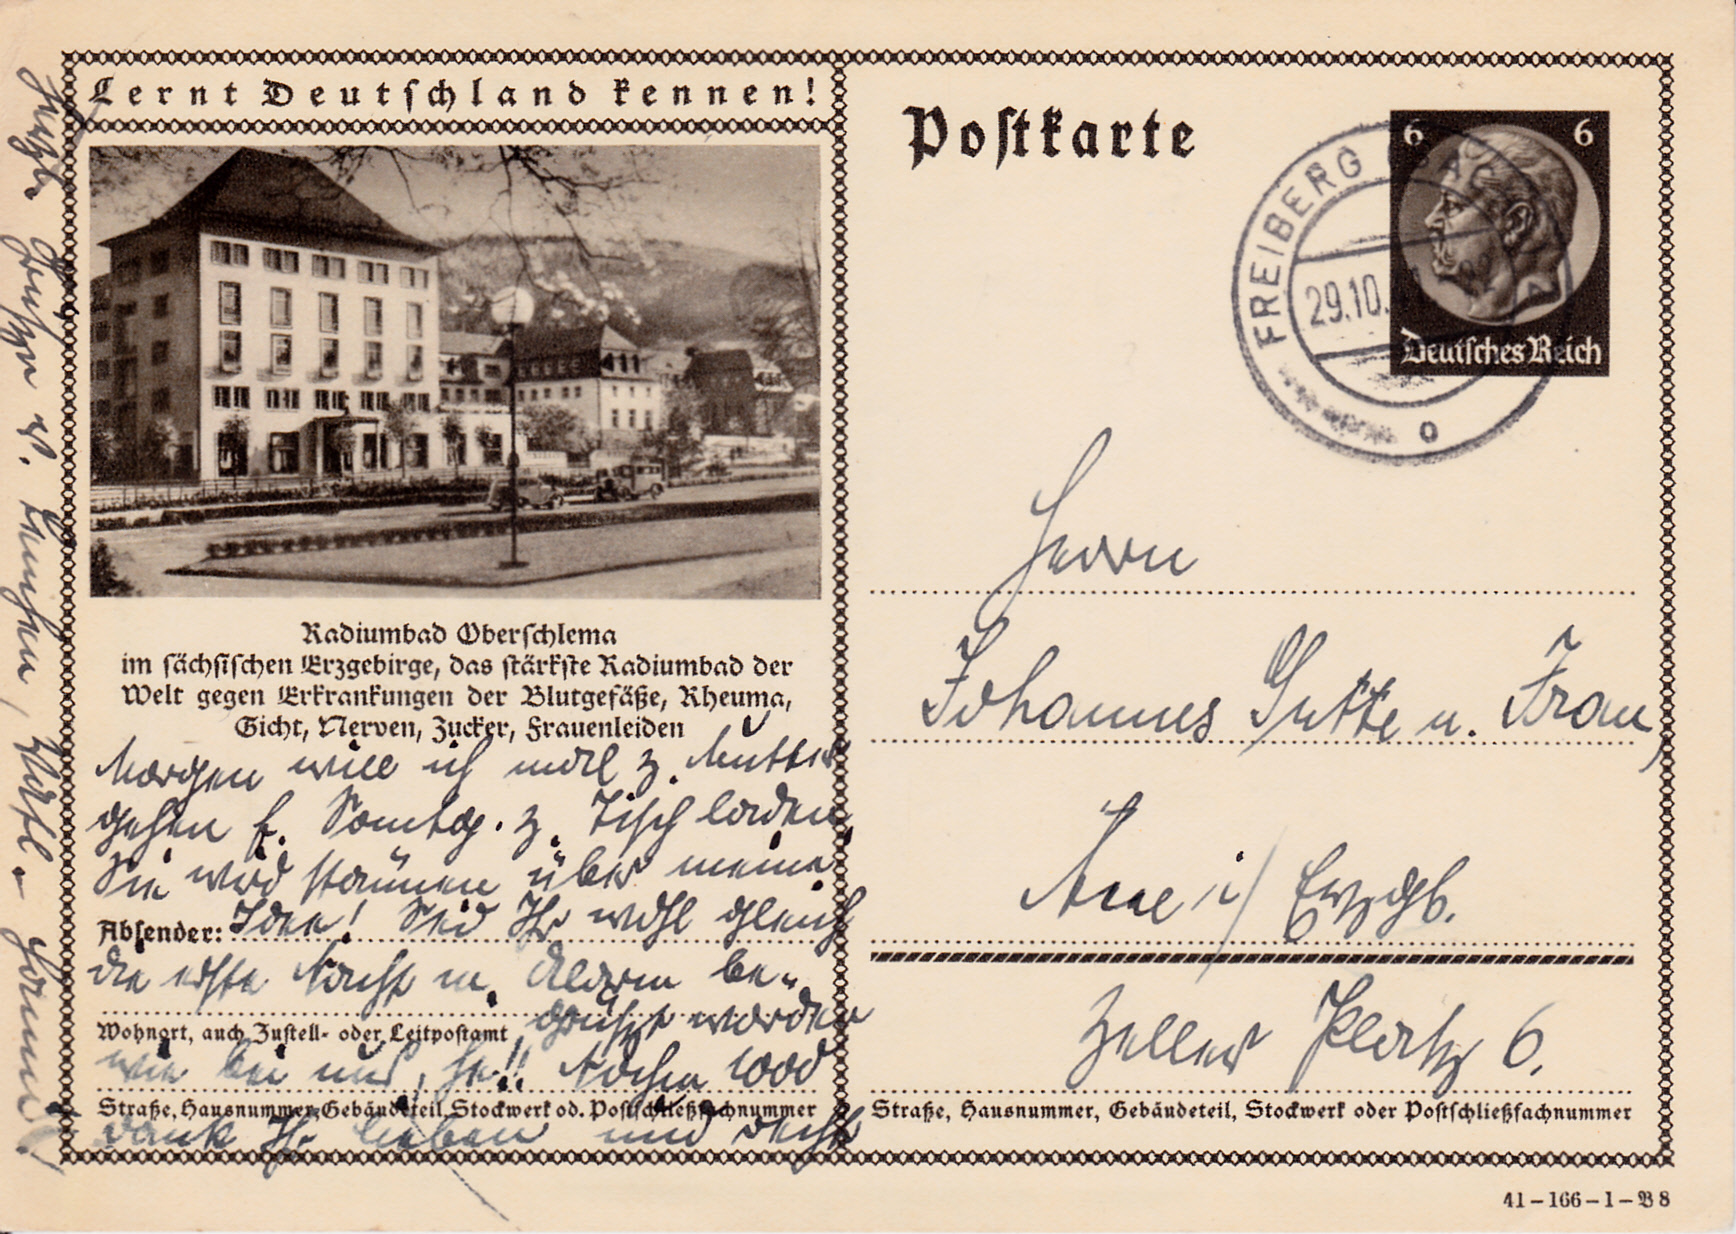 Lernt Deutschland kennen!
Radiumbad Oberschlema
im sächsischen Erzgebirge, das stärkste Radiumbad der
Welt gegen Erkrankungen der Blutgefäße, Rheuma,
Gicht, Nerven, Zucker, Frauenleiden
Morgen will ich mal z. Mutter
gehen f. Sonntag z. Tisch laden,
Sie wird staunen über meine
Absender: Idee! Seid Ihr wohl gleich
die erste Nacht m. Alarm be-
Wohnort, auch Zustell- oder Leitpostamt
grüßt worden
wie bei uns, he!! Nochm 1000
Straße, Hausnummer, Gebäudeteil, Stockwerk od. Postschließfachnummer
dank Ihr lieben und recht
herzl. Grüße v.
Postkarte
6 6
Deutsches Reich
FREIBERG (SACHS)
29.10.
o
Herrn
Johannes Gutte u. Frau,
Aue i/ Erzgb.
Zeller Platz 6.
Straße, Hausnummer, Gebäudeteil, Stockwerk oder Postschließfachnummer
41-166-1-B8